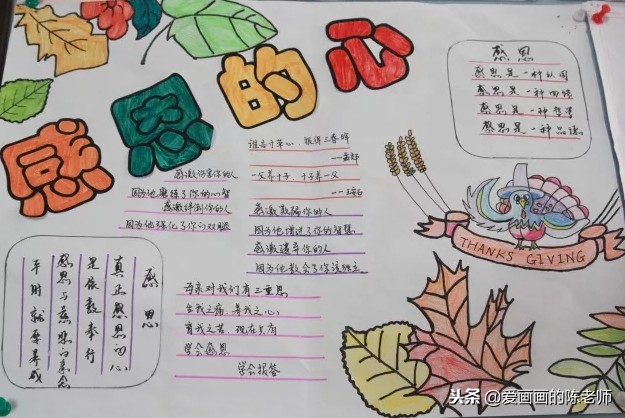 感恩的心
感恩
感恩是一种认同
感恩是一种回馈
感恩是一种哲学
感恩是一种品德
谁言寸草心，报得三春晖
——孟郊
一父养十子，十子养一父
感激伤害你的人
因为他磨练了你的心智
感激绊倒你的人
因为他强化了你的双腿
感激欺骗你的人
因为他增进了你的智慧
感激遗弃你的人
因为他教会了你该独立
THANKS GIVING
感恩
真正感恩的心
是依教奉行
感恩与慈悲的意念
平时就要养成
母亲对我们有三重恩
生我之痛，养我之心
育我之苦，现在只有
学会感恩
学会报答
头条 @爱画画的陈老师